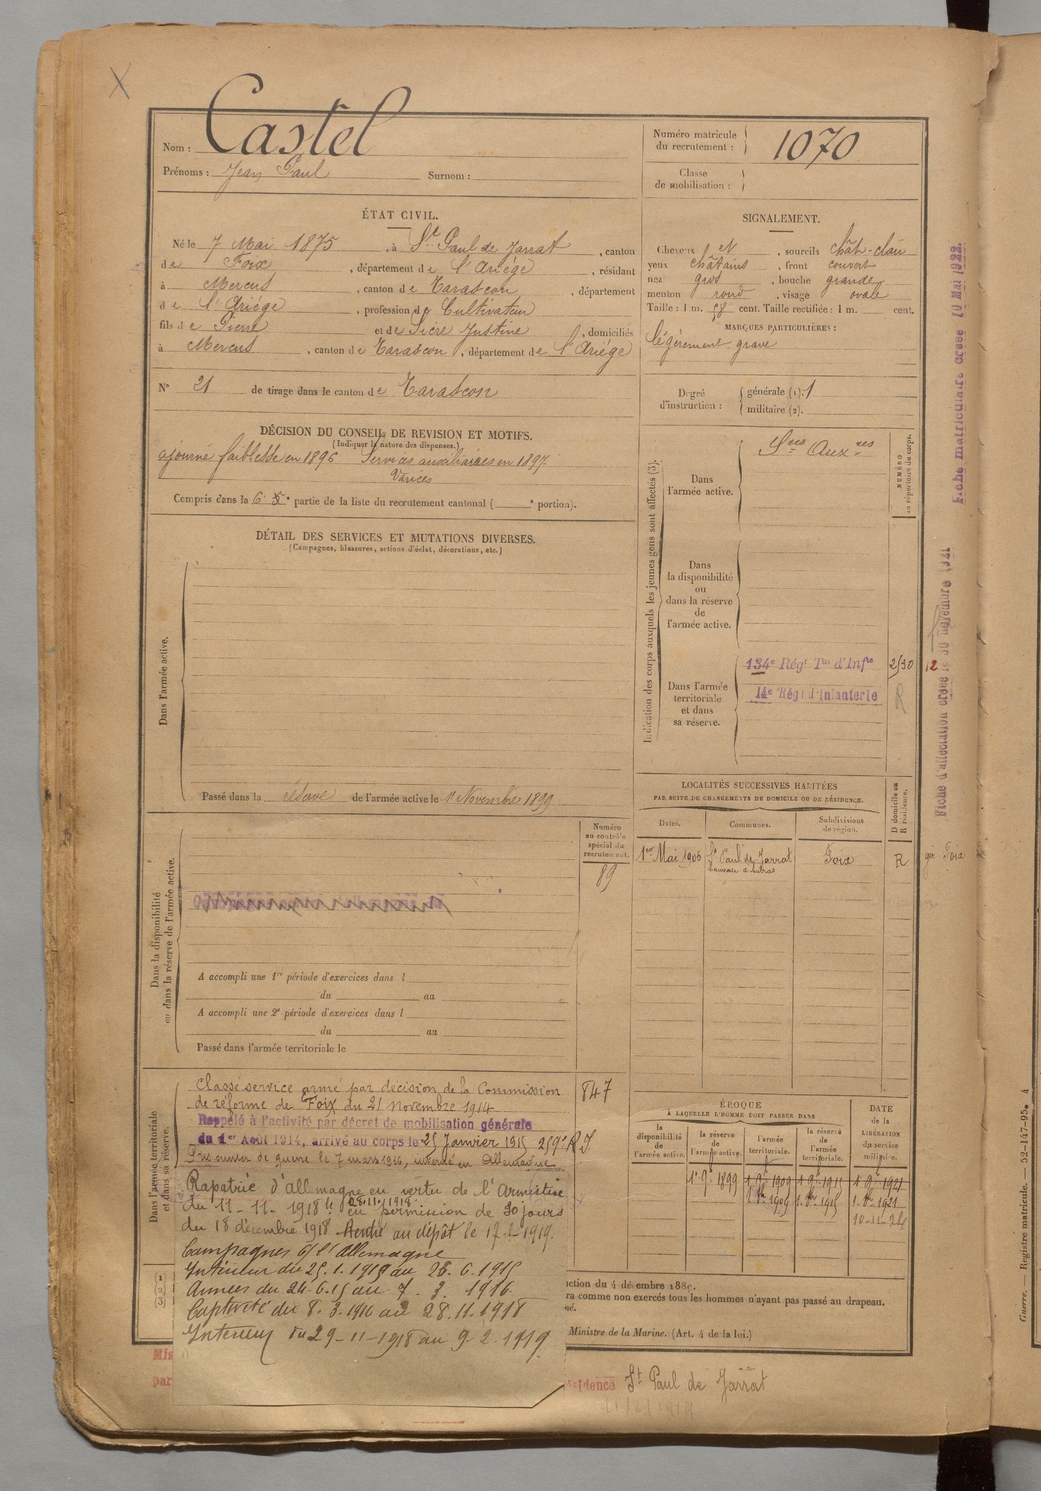 Castel
Nom :
Prénoms : Jean Paul Surnom :
Numéro matricule
du recrutement : 1070
Classe
de mobilisation :
ÉTAT CIVIL.
Né le 7 Mai 1875, à St Paul de Jarrat, canton
de Foix, département de l'Ariège, résidant
à Mercus, canton de Tarascon, département
de l'Ariège, profession de Cultivateur
fils de Pierre et de Sicre Justine, domiciliés
à Mercus, canton de Tarascon, département de l'Ariège
N° 21 de tirage dans le canton de Tarascon
SIGNALEMENT.
Cheveux et, sourcils chât-clair
yeux châtains, front couvert
nez gros, bouche grande
menton rond, visage ovale
Taille : 1 m. 58 cent. Taille rectifiée : 1 m. cent.
MARQUES PARTICULIÈRES :
légèrement gravé
Degré
d'instruction : générale (1). 1
militaire (2).
DÉCISION DU CONSEIL DE REVISION ET MOTIFS.
(Indiquer la nature des dispenses.)
ajourné faiblesse en 1896 Services auxiliaires en 1897
Varices
Compris dans la 6e partie de la liste du recrutement cantonal ( e portion).
DÉTAIL DES SERVICES ET MUTATIONS DIVERSES.
(Campagnes, blessures, actions d'éclat, décorations, etc.)
Dans l'armée active.
Passé dans la réserve de l'armée active le 1er Novembre 1899
Indication des corps auxquels les jeunes gens sont affectés (3).
NUMÉRO
au répertoire du corps.
Dans
l'armée active.
Sces Auxres
Dans
la disponibilité
ou
dans la réserve
de
l'armée active.
Dans l'armée
territoriale
et dans
sa réserve.
134e Régt Tal d'Infie 2/30
14e Régt d'Infanterie R
12
Fiche matriculaire créée 10 Mai 1922
LOCALITÉS SUCCESSIVES HABITÉES
PAR SUITE DE CHANGEMENTS DE DOMICILE OU DE RÉSIDENCE.
Dates. Communes. Subdivisions
de région. D domicile ou
R résidence.
1er Mai 1906 St Paul de Jarrat Foix R
Dans la disponibilité
ou dans la réserve de l'armée active.
Numéro
au contrôle
spécial du
recrutement.
89
A accompli une 1re période d'exercices dans l
du au
A accompli une 2e période d'exercices dans l
du au
Passé dans l'armée territoriale le
Dans l'armée territoriale
et dans sa réserve.
Classé service armé par décision de la Commission 847
de réforme de Foix du 21 novembre 1914
Rappelé à l'activité par décret de mobilisation générale
du 1er Août 1914, arrivé au corps le 25 Janvier 1915 259e R I
Prisonnier de guerre le 7 mars 1916, interné en Allemagne
Rapatrié d'allemagne en vertu de l'Armistice
du 11-11-1918 le 28.11.1918. en permission de 30 jours
du 18 décembre 1918. Rentré au dépôt le 17-1-1919.
Campagnes c/ l'allemagne
Intérieur du 25.1.1915 au 23.6.1915
Armées du 24.6.15 au 7. 3. 1916
Captivité du 8.3.1916 au 28.11.1918
Intérieur du 29-11-1918 au 9-2.1919.
ÉPOQUE
À LAQUELLE L'HOMME DOIT PASSER DANS
DATE
DE LA
LIBÉRATION
du service
militaire.
la
disponibilité
de
l'armée active.
la réserve
de
l'armée active.
l'armée
territoriale.
la réserve
de
l'armée
territoriale.
1.9.1899 1.9.1909 1.9.1915 1.9.1921
10-11-24
ction du 4 décembre 1889.
ra comme non exercés tous les hommes n'ayant pas passé au drapeau.
Ministre de la Marine. (Art. 4 de la loi.)
Mis
par
sidence St Paul de Jarrat
Guerre. — Registre matricule. — 52-147-95. 4